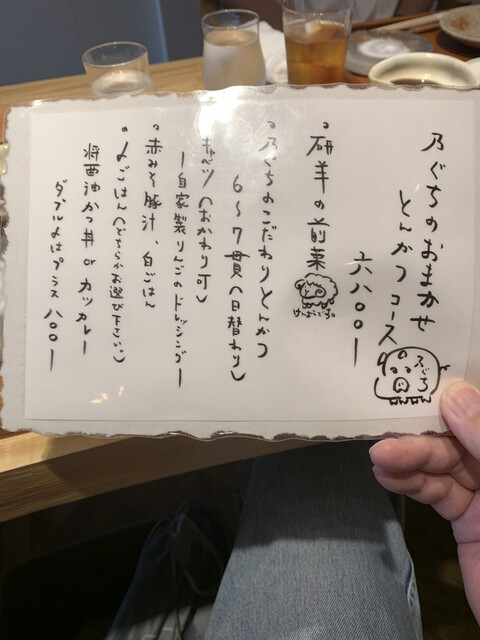 乃ぐちのおまかせ
とんかつコース
六八〇〇ー
乃ぐち
。研羊の前菜
けんようころ
。乃ぐちのこだわりとんかつ
6〜7貫(日替わり)
キャベツ(おかわり可)
ー自家製りんごのドレッシングー
。赤みそ豚汁、白ごはん
。〆ごはん(どちらかお選び下さい。)
醤油かつ丼 or カツカレー
ダブル〆はプラス八〇〇ー